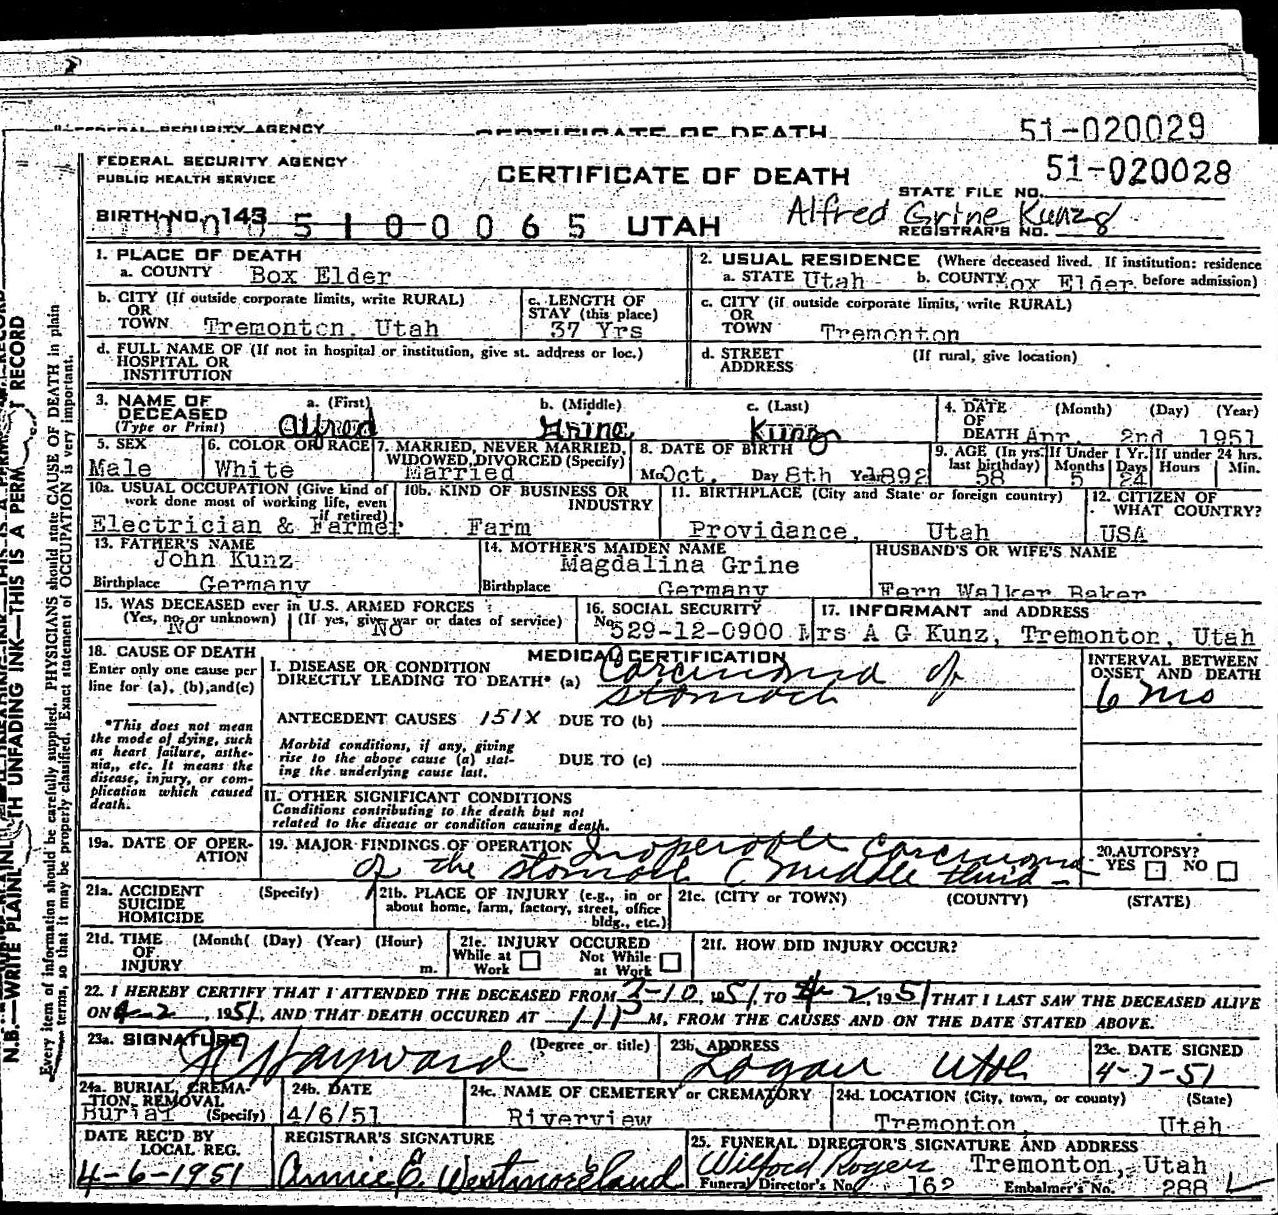 FEDERAL SECURITY AGENCY CERTIFICATE OF DEATH 51-020029
FEDERAL SECURITY AGENCY
PUBLIC HEALTH SERVICE
CERTIFICATE OF DEATH
51-020028
STATE FILE NO.
Alfred Grine Kunz
REGISTRAR'S NO.
BIRTH NO. 143
5 1 0 0 0 6 5 UTAH
1. PLACE OF DEATH
a. COUNTY Box Elder
2. USUAL RESIDENCE (Where deceased lived. If institution: residence before admission)
a. STATE Utah b. COUNTY ox Elder
b. CITY (If outside corporate limits, write RURAL)
OR
TOWN Tremonton, Utah
c. LENGTH OF
STAY (this place)
37 Yrs
c. CITY (if outside corporate limits, write RURAL)
OR
TOWN Tremonton
d. FULL NAME OF (If not in hospital or institution, give st. address or loc.)
HOSPITAL OR
INSTITUTION
d. STREET (If rural, give location)
ADDRESS
3. NAME OF DECEASED
(Type or Print)
a. (First) b. (Middle) c. (Last)
Alfred Grine Kunz
4. DATE OF DEATH (Month) (Day) (Year)
Apr. 2nd 1951
5. SEX
Male
6. COLOR OR RACE
White
7. MARRIED, NEVER MARRIED,
WIDOWED, DIVORCED (Specify)
Married
8. DATE OF BIRTH
Mo Oct. Day 8th Yr 1892
9. AGE (In yrs. last birthday) If Under 1 Yr. If under 24 hrs.
Months Days Hours Min.
58 5 24
10a. USUAL OCCUPATION (Give kind of
work done most of working life, even
if retired)
Electrician & Farmer
10b. KIND OF BUSINESS OR
INDUSTRY
Farm
11. BIRTHPLACE (City and State or foreign country)
Providance, Utah
12. CITIZEN OF
WHAT COUNTRY?
USA
13. FATHER'S NAME
John Kunz
Birthplace Germany
14. MOTHER'S MAIDEN NAME
Magdalina Grine
Birthplace Germany
HUSBAND'S OR WIFE'S NAME
Fern Walker Baker
15. WAS DECEASED ever in U.S. ARMED FORCES
(Yes, no, or unknown) (If yes, give war or dates of service)
No No
16. SOCIAL SECURITY
No. 529-12-0900
17. INFORMANT and ADDRESS
Mrs A G Kunz, Tremonton, Utah
18. CAUSE OF DEATH
Enter only one cause per
line for (a), (b), and (c)
*This does not mean
the mode of dying, such
as heart failure, asthe-
nia,, etc. It means the
disease, injury, or com-
plication which caused
death.
MEDICAL CERTIFICATION
I. DISEASE OR CONDITION
DIRECTLY LEADING TO DEATH* (a) Carcinoma of
stomach
INTERVAL BETWEEN
ONSET AND DEATH
6 mo
ANTECEDENT CAUSES 151X DUE TO (b)
Morbid conditions, if any, giving
rise to the above cause (a) stat-
ing the underlying cause last.
DUE TO (c)
II. OTHER SIGNIFICANT CONDITIONS
Conditions contributing to the death but not
related to the disease or condition causing death.
19a. DATE OF OPER-
ATION
19. MAJOR FINDINGS OF OPERATION Inoperable Carcinoma
of the stomach (middle third-
20. AUTOPSY?
YES NO
21a. ACCIDENT (Specify)
SUICIDE
HOMICIDE
21b. PLACE OF INJURY (e.g., in or
about home, farm, factory, street, office
bldg., etc.)
21c. (CITY or TOWN) (COUNTY) (STATE)
21d. TIME (Month( (Day) (Year) (Hour)
OF
INJURY m.
21e. INJURY OCCURED
While at Work Not While at Work
21f. HOW DID INJURY OCCUR?
22. I HEREBY CERTIFY THAT I ATTENDED THE DECEASED FROM 3-10, 1951, TO 4-2, 1951 THAT I LAST SAW THE DECEASED ALIVE
ON 4-2, 1951, AND THAT DEATH OCCURED AT 111P M, FROM THE CAUSES AND ON THE DATE STATED ABOVE.
23a. SIGNATURE (Degree or title)
Hayward
23b. ADDRESS
Logan Utah
23c. DATE SIGNED
4-7-51
24a. BURIAL, CREMA-
TION, REMOVAL
Burial (Specify)
24b. DATE
4/6/51
24c. NAME OF CEMETERY or CREMATORY
Riverview
24d. LOCATION (City, town, or county) (State)
Tremonton Utah
DATE REC'D BY
LOCAL REG.
4-6-1951
REGISTRAR'S SIGNATURE
Annie E. Westmoreland
25. FUNERAL DIRECTOR'S SIGNATURE AND ADDRESS
Wilford Rogers Tremonton, Utah
Funeral Director's No. 162 Embalmer's No. 288
N.B.—WRITE PLAINLY WITH UNFADING INK—THIS IS A PERM T RECORD
Every item of information should be carefully supplied. PHYSICIANS should state CAUSE OF DEATH in plain
terms, so that it may be properly classified. Exact statement of OCCUPATION is very important.